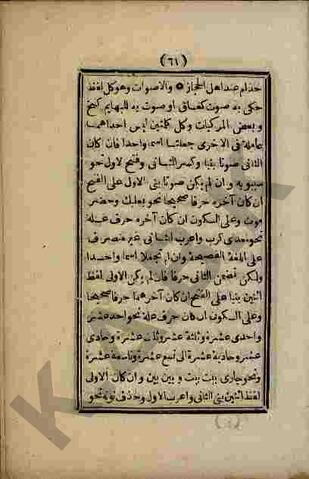 (٦١)
حذام عند اهل الحجاز ٥ والاصوات وهو كل لفظ
حكى به صوت كغاق او صوت به للبهايم كنخ
وبعض المركبات وكل كلمتين ليس احداهما
عاملة فى الاخرى جعلتا اسما واحدا فان كان
الثانى صوتا بنيا وكسر الثانى وفتح لاول نحو
سيبويه وان لم يكن صوتا بنى الاول على الفتح
ان كان آخره حرفا صحيحا نحو بعلبك وحضر
موت وعلى السكون ان كان آخره حرف علة
نحو معدى كرب واعرب الثانى غير منصرف
على اللغة الفصيحة وان لم تجعلا اسما واحدا
ولكن تضمن الثانى حرفا فان لم يكن الاول لفظ
اثنين بنيا على الفتح ان كان آخرهما حرفا صحيحا
وعلى السكون ان كان حرف علة نحو احد عشر
واحدى عشرة وثلثة عشر وثلث عشرة وحادى
عشر وحادية عشرة الى تسع عشر وتاسعة عشرة
ونحو جارى بيت بيت و بين بين وان كان الاولى
لفظ اثنين بنى الثانى واعرب الاول وحذف نونه نحو